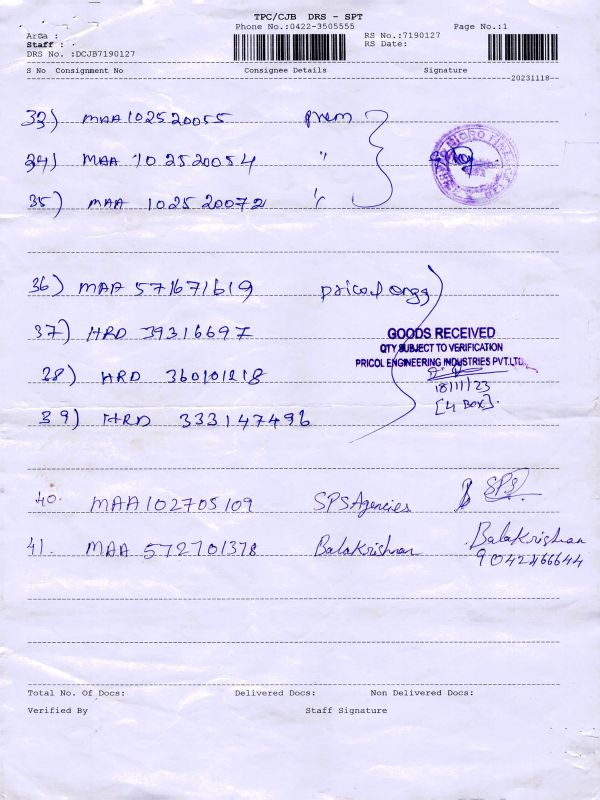 TPC/CJB DRS - SPT
Phone No.:0422-3505555 Page No.:1
Area : RS No.:7190127
Staff : RS Date:
DRS No. :DCJB7190127
S No Consignment No Consignee Details Signature
20231118
33) MAA 102520055 prem
34) MAA 102520054 "
35) MAA 102520072 "
36) MAA 571671619 pricol engg
37) HRD 39316697
GOODS RECEIVED
QTY SUBJECT TO VERIFICATION
PRICOL ENGINEERING INDUSTRIES PVT.LTD.,
38) HRD 360101218
18/11/23
[4 BOX].
39) HRD 333147496
40. MAA102705109 SPS Agencies SPS
41. MAA 572701378 Balakrishnan Balakrishnan
Total No. Of Docs: Delivered Docs: Non Delivered Docs:
Verified By Staff Signature